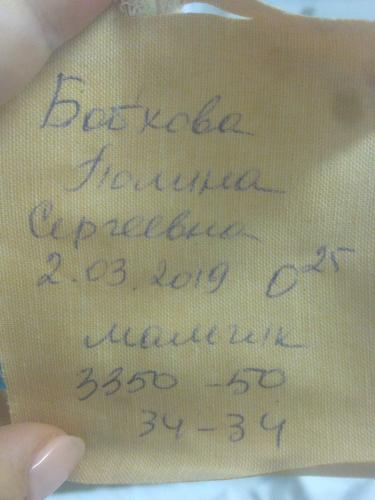 Бобкова
Полина
Сергеевна
2.03.2019 0²⁵
мальчик
3350 – 50
34 – 34